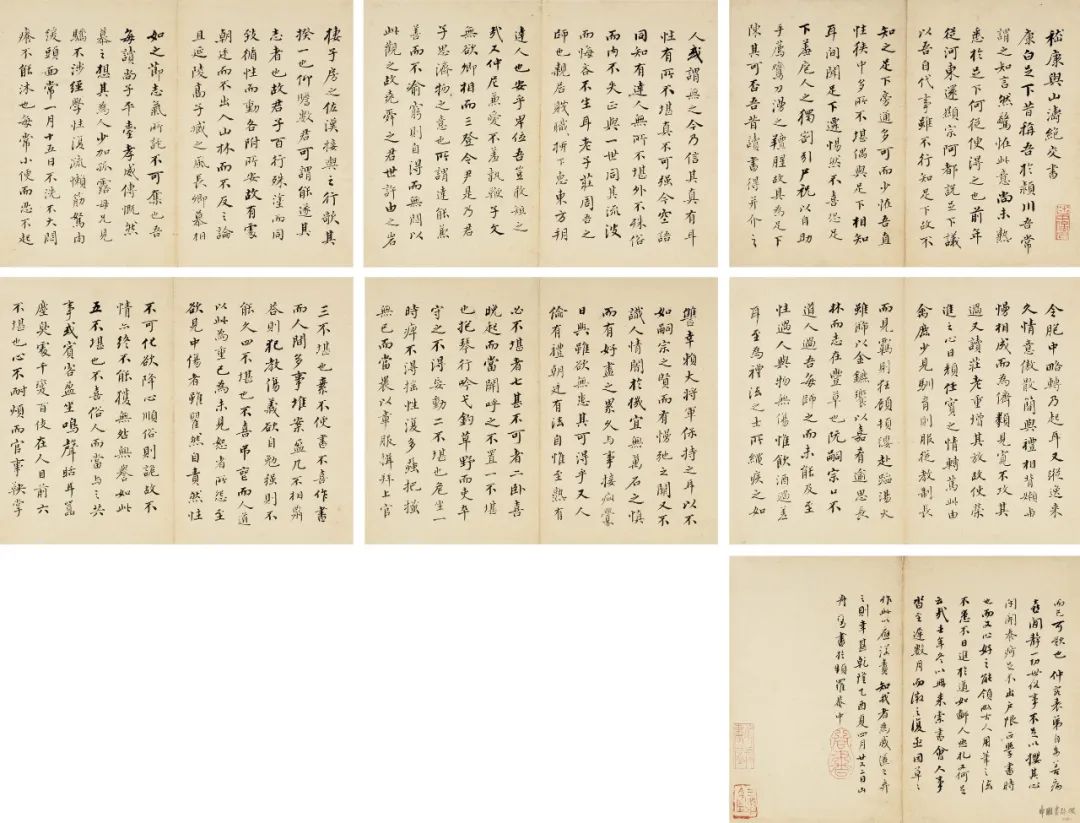 嵇康與山濤絕交書
康白足下昔稱吾於潁川吾常
謂之知言然驚怪此意尚未熟
悉於足下何從便得之也前年
從河東還顯宗阿都說足下議
以吾自代事雖不行知足下故不
知之足下旁通多可而少怪吾直
性狹中多所不堪偶與足下相知
耳間聞足下遷惕然不喜恐足
下羞庖人之獨割引尸祝以自助
手薦鸞刀漫之羶腥故具為足下
陳其可否吾昔讀書得并介之
人或謂無之今乃信其真有耳
性有所不堪真不可強今空語
同知有達人無所不堪外不殊俗
而內不失正與一世同其流波
而悔吝不生耳老子莊周吾之
師也親居賤職柳下惠東方朔
達人也安乎卑位吾豈敢短之
哉又仲尼兼愛不羞執鞭子文
無欲卿相而三登令尹是乃君
子思濟物之意也所謂達能兼
善而不渝窮則自得而無悶以
此觀之故堯舜之君世許由之岩
棲子房之佐漢接輿之行歌其
揆一也仰瞻數君可謂能遂其
志者也故君子百行殊塗而同
致循性而動各附所安故有處
朝廷而不出入山林而不反之論
且延陵高子臧之風長卿慕相
如之節志氣所託不可奪也吾
每讀尚子平臺孝威傳慨然
慕之想其為人少加孤露母兄見
驕不涉經學性復疏懶筋駑肉
緩頭面常一月十五日不洗不大悶
癢不能沐也每常小便而忍不起
令胞中略轉乃起耳又縱逸來
久情意傲散簡與禮相背嬾與
慢相成而為儕類見寬不攻其
過又讀莊老重增其放故使榮
進之心日頹任實之情轉篤此由
禽鹿少見馴育則服從教制長
而見羈則狂顧頓纓赴蹈湯火
雖飾以金鑣饗以嘉肴逾思長
林而志在豐草也阮嗣宗口不
道人過吾每師之而未能及至
性過人與物無傷惟飲酒過差
耳至為禮法之士所繩疾之如
讐幸賴大將軍保持之耳以不
如嗣宗之賢而有慢弛之闕又不
識人情闇於機宜無萬石之慎
而有好盡之累久與事接疵釁
日興雖欲無患其可得乎又人
倫有禮朝廷有法自惟至熟有
必不堪者七甚不可者二臥喜
晚起而當關呼之不置一不堪
也抱琴行吟弋釣草野而吏卒
守之不得妄動二不堪也危坐一
時痺不得搖性復多蝨把搔
無已而當裹以章服揖拜上官
三不堪也素不便書不喜作書
而人間多事堆案盈几不相酬
答則犯教傷義欲自勉強則不
能久四不堪也不喜弔喪而人道
以此為重已為未見恕者所怨至
欲見中傷者雖瞿然自責然性
不可化欲降心順俗則詭故不
情亦終不能獲無咎無譽如此
五不堪也不喜俗人而當與之共
事或賓客盈坐鳴聲聒耳囂
塵臭處千變百伎在人目前六
不堪也心不耐煩而官事鞅掌
而已可歎也 仲表弟自善病
喜靜一切世俗事不足以攖其心
閉閣養疴足不出戶限學書時
也而又心好之能領略古人用筆之法
不患不日進於道如鄙人札又何足
云哉壬午冬以冊來索書會人事
沓至遲數月而復亟因草之
作此以應深責知我者為感匿之弃
之則幸甚乾隆乙酉夏四月廿日山
舟同書於頻羅菴中